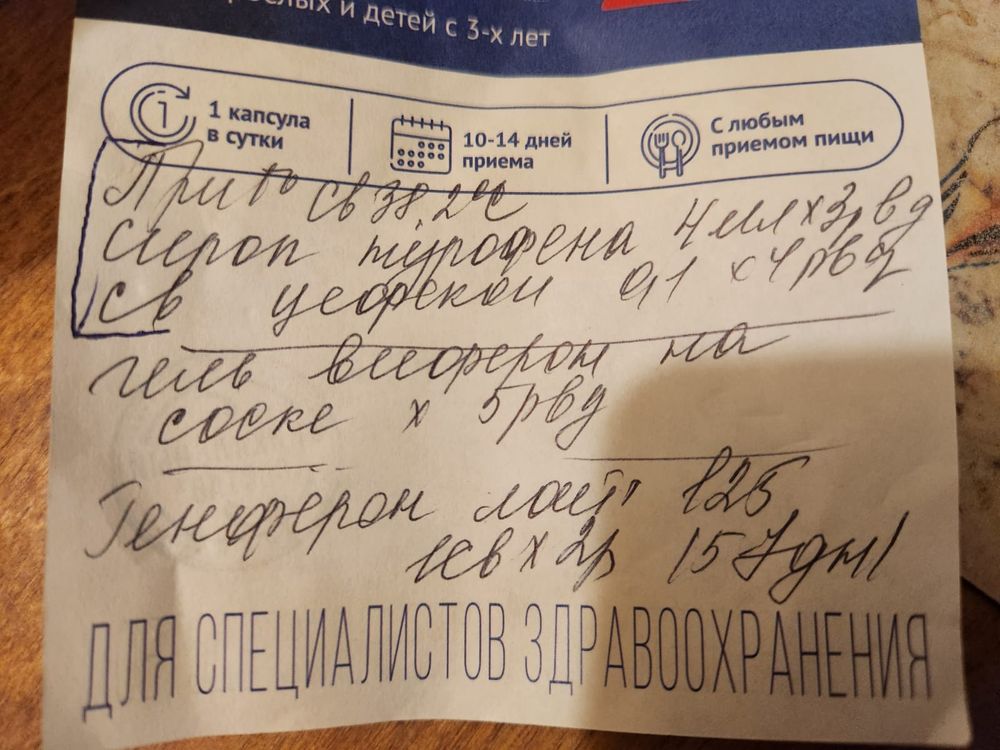 и детей с 3-х лет
1 капсула
в сутки
10-14 дней
приема
С любым
приемом пищи
При t° св 38,2°С
сироп нурофена 4мл х 3р в д
св цефекон 0,1 х 4р в д
гель виферон на
соске х 5р в д
Генферон лайт 125
1св х 2р 5-7 дн
ДЛЯ СПЕЦИАЛИСТОВ ЗДРАВООХРАНЕНИЯ